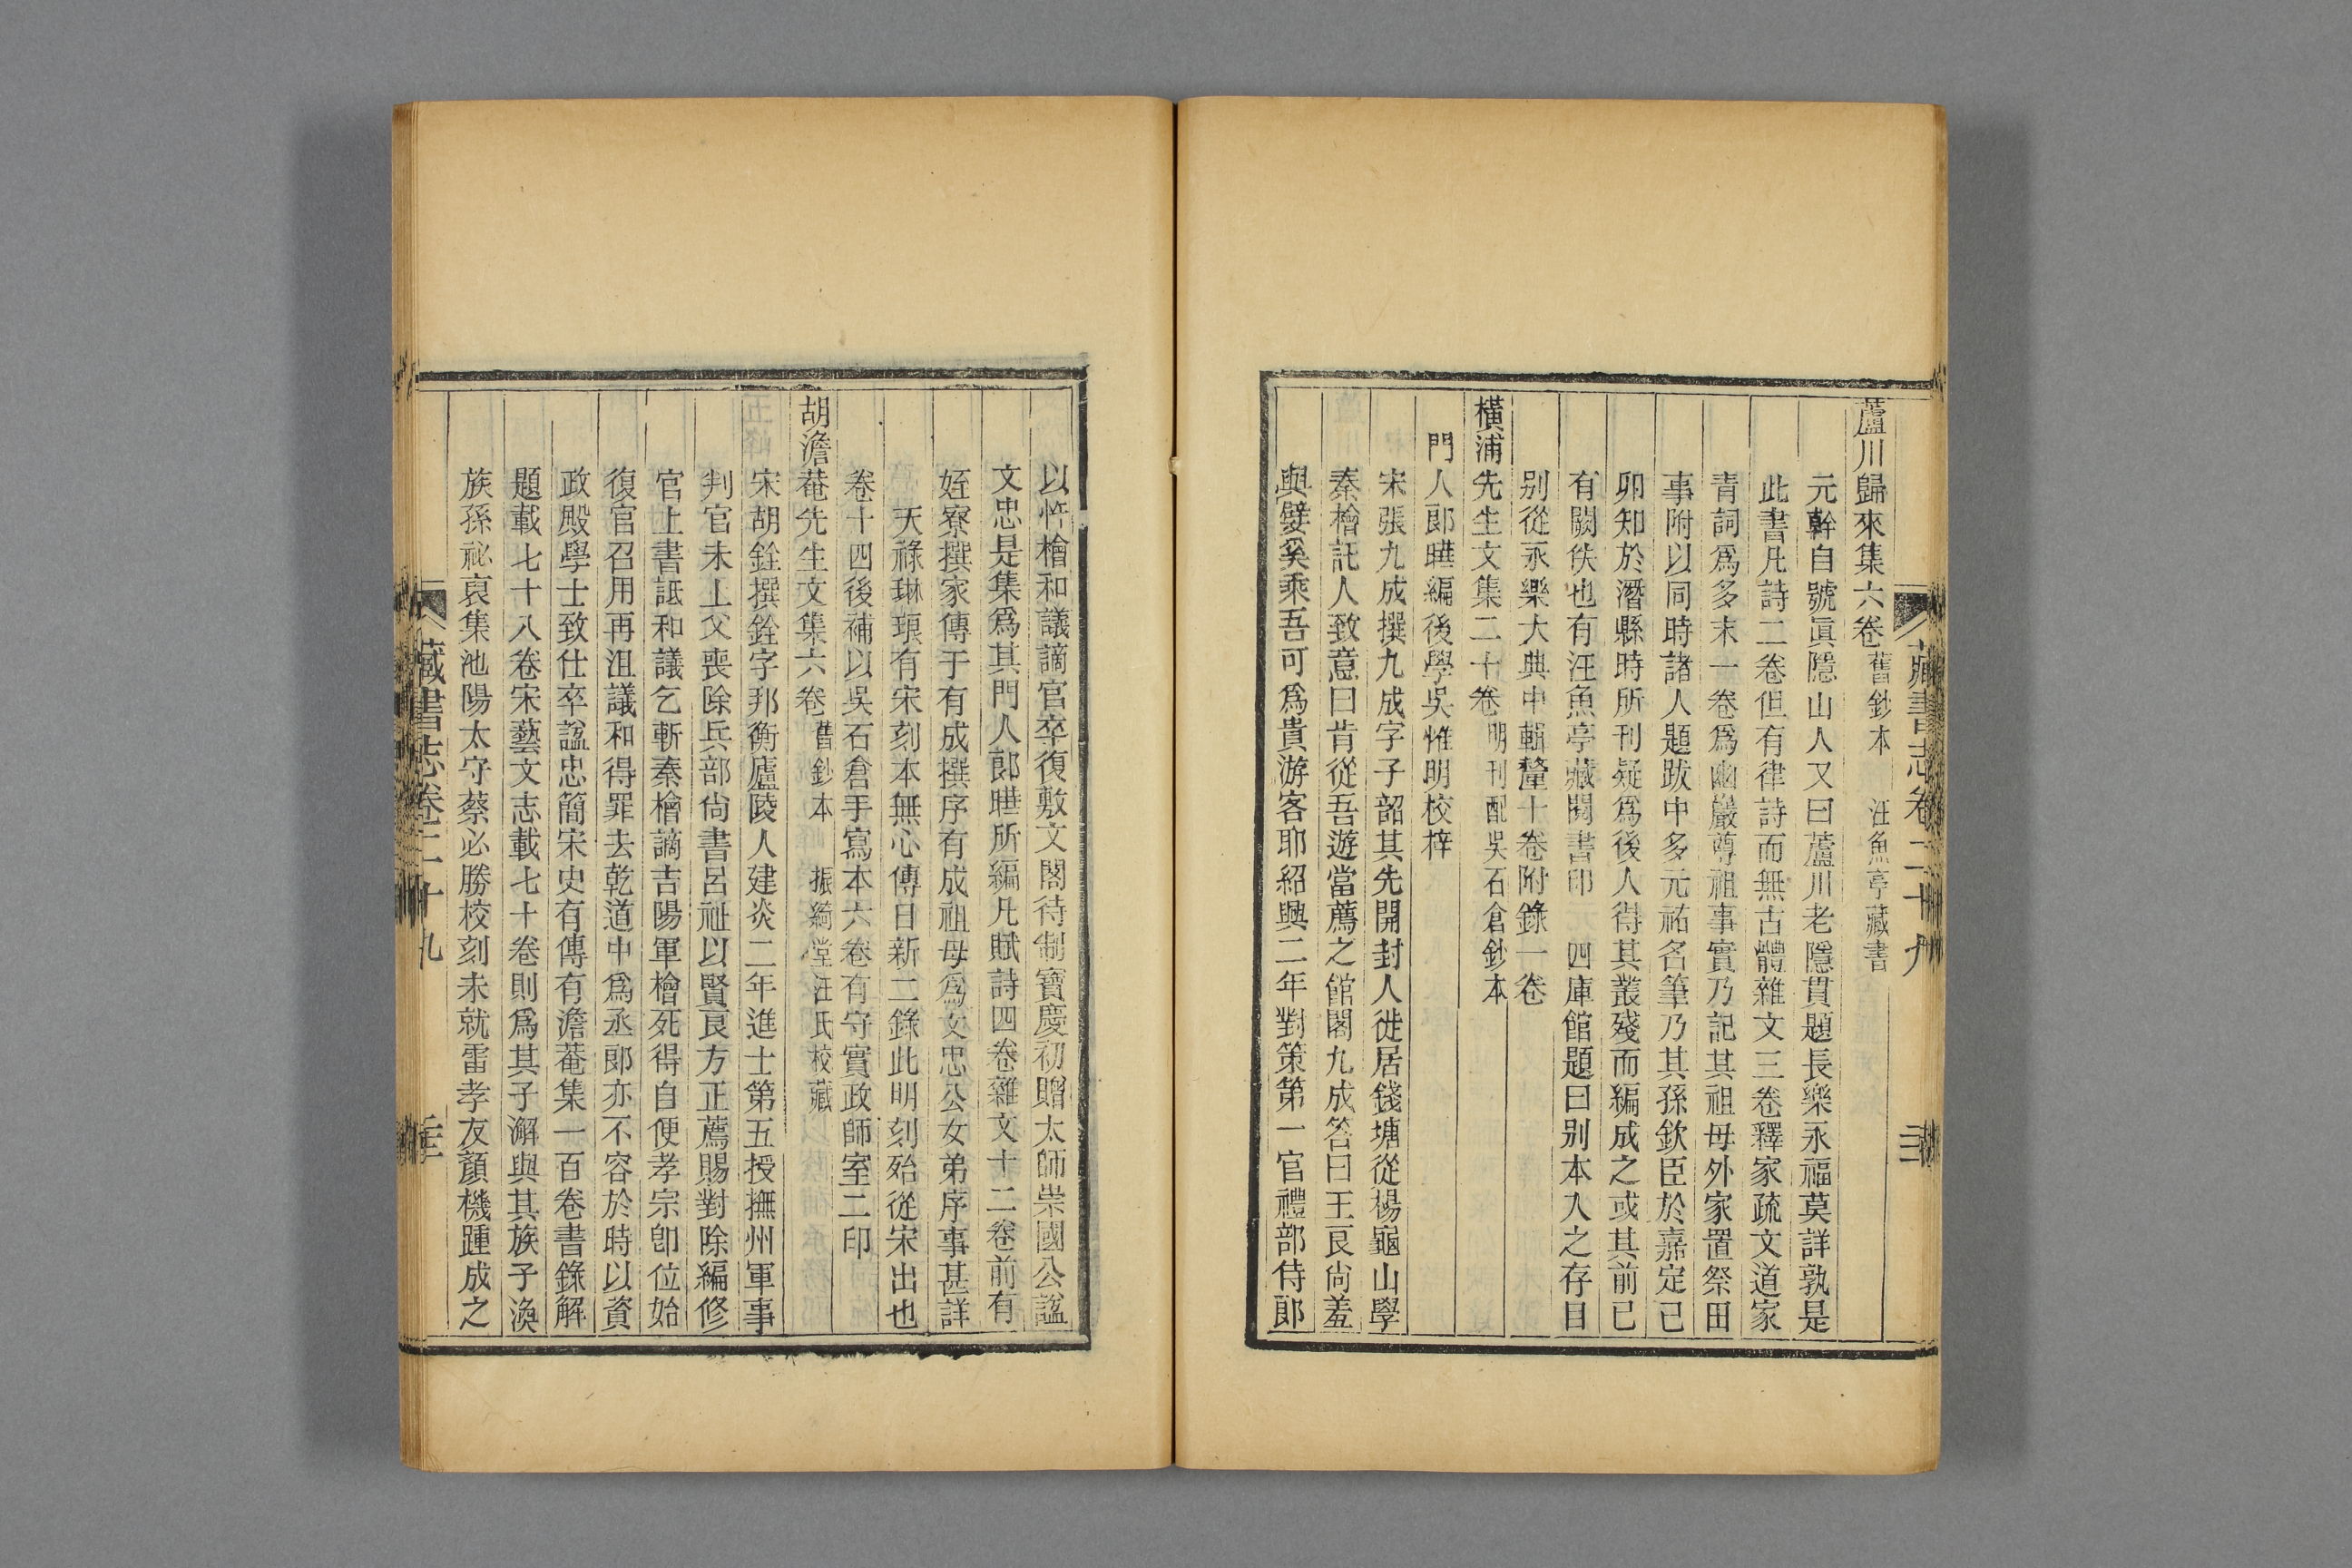 藏書志卷二十九
三
蘆川歸來集六卷 舊鈔本 汪魚亭藏書
元幹自號眞隱山人又曰蘆川老隱貫題長樂永福莫詳孰是
此書凡詩二卷但有律詩而無古體雜文三卷釋家疏文道家
青詞爲多末一卷爲幽巖尊祖事實乃記其祖母外家置祭田
事附以同時諸人題跋中多元祐名筆乃其孫欽臣於嘉定己
卯知於潛縣時所刊疑爲後人得其叢殘而編成之或其前已
有闕佚也有汪魚亭藏閱書印 四庫館題曰别本入之存目
别從永樂大典中輯釐十卷附錄一卷
橫浦先生文集二十卷 明刊配吳石倉鈔本
門人郎曄編後學吳惟明校梓
宋張九成撰九成字子韶其先開封人徙居錢塘從楊龜山學
秦檜託人致意曰肯從吾遊當薦之館閣九成答曰王良尙羞
與嬖奚乘吾可爲貴游客耶紹興二年對策第一官禮部侍郎
以忤檜和議謫官卒復敷文閣待制寶慶初贈太師崇國公諡
文忠是集爲其門人郎曄所編凡賦詩四卷雜文十二卷前有
姪寮撰家傳于有成撰序有成祖母爲文忠公女弟序事甚詳
天祿琳琅有宋刻本無心傳日新二錄此明刻殆從宋出也
卷十四後補以吳石倉手寫本六卷有守實政師室二印
胡澹菴先生文集六卷 舊鈔本 振綺堂汪氏校藏
宋胡銓撰銓字邦衡廬陵人建炎二年進士第五授撫州軍事
判官未上父喪除兵部尙書呂祉以賢良方正薦賜對除編修
官上書詆和議乞斬秦檜謫吉陽軍檜死得自便孝宗卽位始
復官召用再沮議和得罪去乾道中爲丞郎亦不容於時以資
政殿學士致仕卒諡忠簡宋史有傳有澹菴集一百卷書錄解
題載七十八卷宋藝文志載七十卷則爲其子澥與其族子渙
族孫祕裒集池陽太守蔡必勝校刻未就雷孝友顏機踵成之
藏書志卷二十九
三